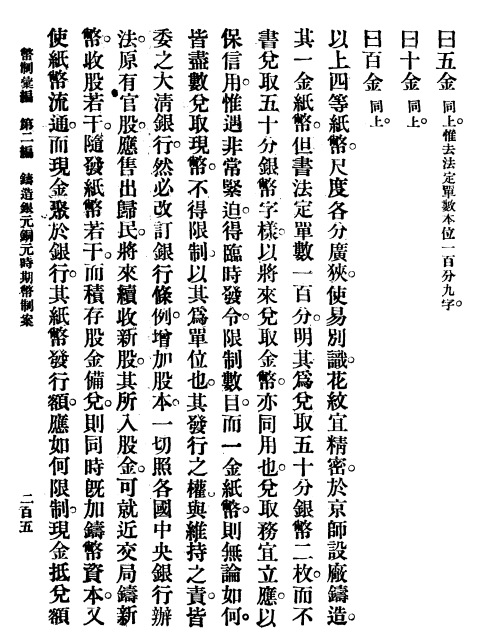 曰五金同上。惟去法定單數本位一百分九字。
曰十金同上。
曰百金同上。
以上四等紙幣。尺度各分廣狹。使易別識。花紋宜精密。於京師設廠鑄造。
其一金紙幣。但書法定單數一百分。明其爲兌取五十分銀幣二枚。而不
書兌取五十分銀幣字樣。以將來兌取金幣。亦同用也。兌取務宜立應。以
保信用。惟遇非常緊迫。得臨時發令。限制數目。而一金紙幣。則無論如何。
皆盡數兌取現幣。不得限制。以其爲單位也。其發行之權。與維持之責。皆
委之大淸銀行。然必改訂銀行條例。增加股本。一切照各國中央銀行辦
法。原有官股。應售出歸民。將來續收新股。其所入股金。可就近交局鑄新
幣。收股若干。隨發紙幣若干。而積存股金備兌。則同時旣加鑄幣資本。又
使紙幣流通。而現金聚於銀行。其紙幣發行額。應如何限制。現金抵兌額
幣制彙編 第二編 鑄造銀元銅元時期幣制案 二百五